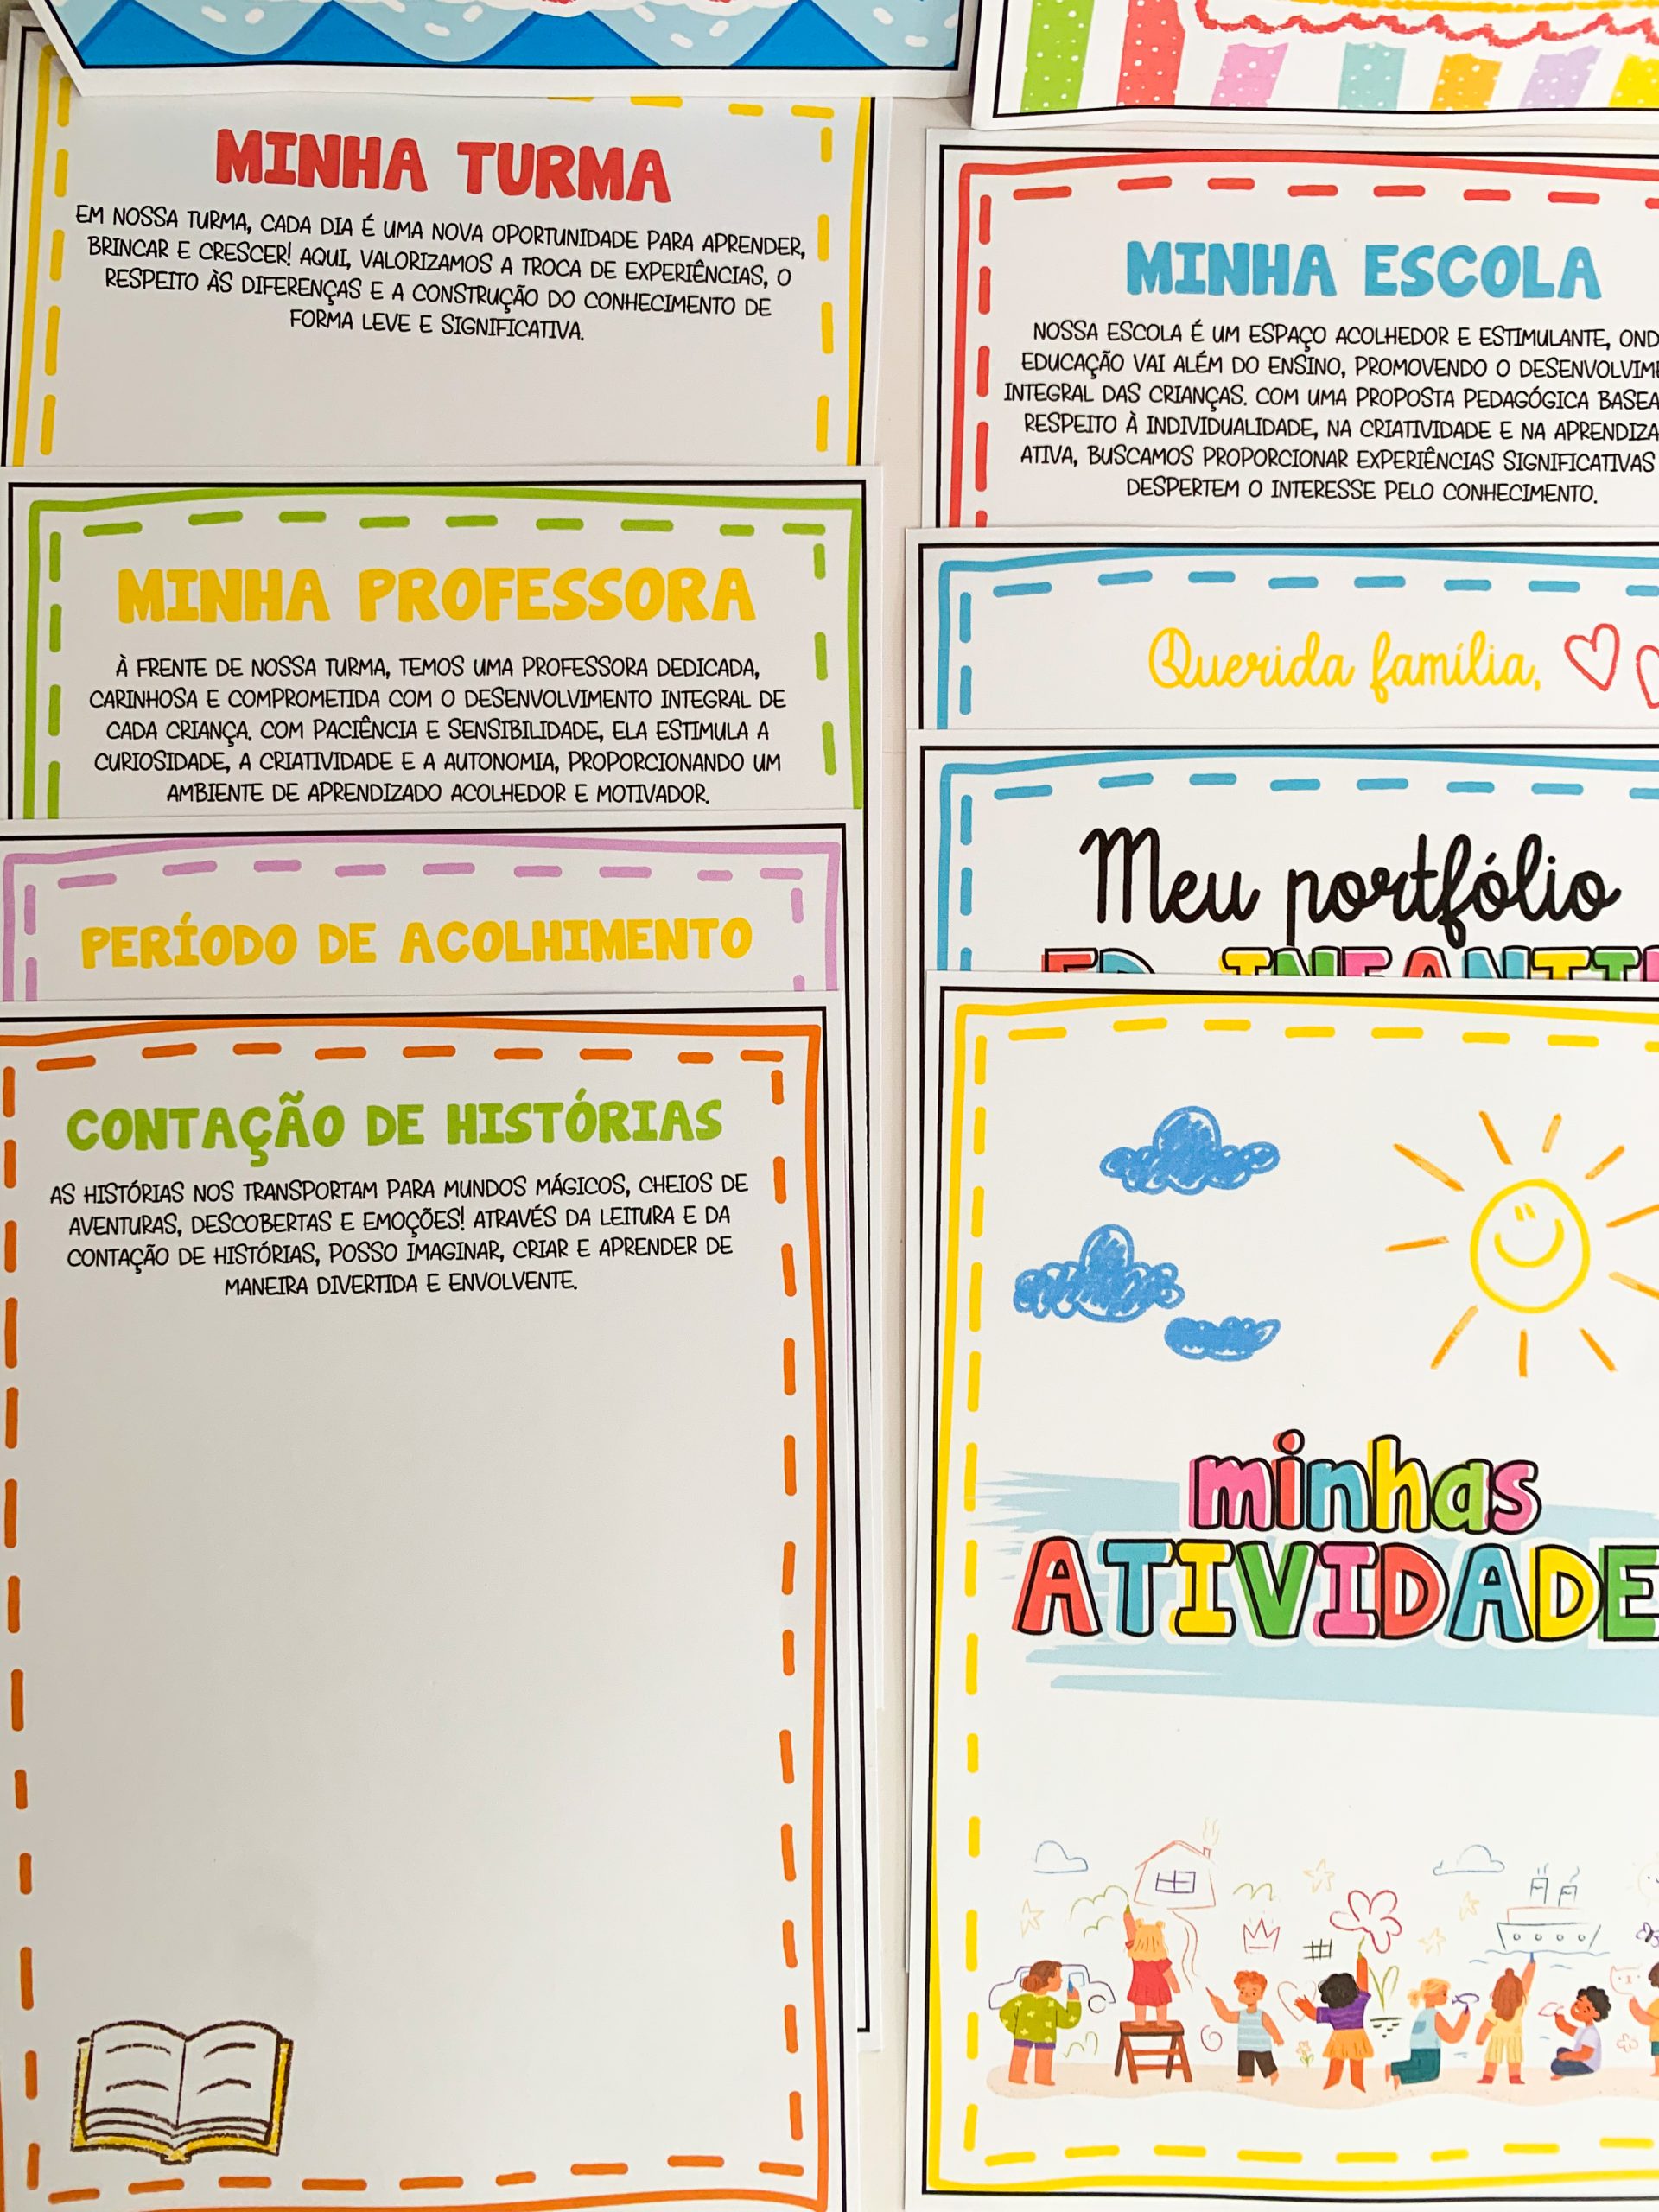 MINHA TURMA
EM NOSSA TURMA, CADA DIA É UMA NOVA OPORTUNIDADE PARA APRENDER,
BRINCAR E CRESCER! AQUI, VALORIZAMOS A TROCA DE EXPERIÊNCIAS, O
RESPEITO ÀS DIFERENÇAS E A CONSTRUÇÃO DO CONHECIMENTO DE
FORMA LEVE E SIGNIFICATIVA.
MINHA PROFESSORA
À FRENTE DE NOSSA TURMA, TEMOS UMA PROFESSORA DEDICADA,
CARINHOSA E COMPROMETIDA COM O DESENVOLVIMENTO INTEGRAL DE
CADA CRIANÇA. COM PACIÊNCIA E SENSIBILIDADE, ELA ESTIMULA A
CURIOSIDADE, A CRIATIVIDADE E A AUTONOMIA, PROPORCIONANDO UM
AMBIENTE DE APRENDIZADO ACOLHEDOR E MOTIVADOR.
PERÍODO DE ACOLHIMENTO
CONTAÇÃO DE HISTÓRIAS
AS HISTÓRIAS NOS TRANSPORTAM PARA MUNDOS MÁGICOS, CHEIOS DE
AVENTURAS, DESCOBERTAS E EMOÇÕES! ATRAVÉS DA LEITURA E DA
CONTAÇÃO DE HISTÓRIAS, POSSO IMAGINAR, CRIAR E APRENDER DE
MANEIRA DIVERTIDA E ENVOLVENTE.
MINHA ESCOLA
NOSSA ESCOLA É UM ESPAÇO ACOLHEDOR E ESTIMULANTE, OND
EDUCAÇÃO VAI ALÉM DO ENSINO, PROMOVENDO O DESENVOLVIM
INTEGRAL DAS CRIANÇAS. COM UMA PROPOSTA PEDAGÓGICA BASEA
RESPEITO À INDIVIDUALIDADE, NA CRIATIVIDADE E NA APRENDIZA
ATIVA, BUSCAMOS PROPORCIONAR EXPERIÊNCIAS SIGNIFICATIVAS
DESPERTEM O INTERESSE PELO CONHECIMENTO.
Querida família,
Meu portfólio
ED. INFANTIL
minhas
ATIVIDADE